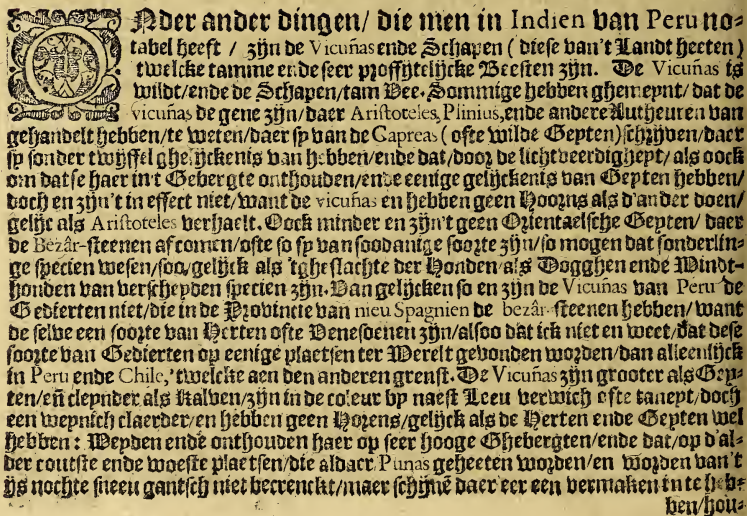 ONder ander dingen/ die men in Indien van Peru no-
tabel heeft / zijn de Vicuñas ende Schapen ( diese van't Landt heeten )
twelcke tamme ende seer proffijtelijcke Beesten zijn. De Vicuñas is
wildt/ende de Schapen/tam Vee. Sommige hebben ghemeynt/ dat de
vicuñas de gene zijn/daer Aristoteles, Plinius,ende andere Autheuren van
gehandelt hebben/te weten/daer sp van de Capreas ( ofte wilde Geyten)schrijven/daer
sp sonder twijffel ghelijckenis van hebben/ende dat/door de lichtveerdigheyt/ als oock
om datse haer in't Gebergte onthouden/ende eenige gelijckenis van Geyten hebben/
doch en zijn't in effect niet/want de vicuñas en hebben geen Hoorns als d'ander doen/
gelijc als Aristoteles verhaelt. Oock minder en zijn't geen Orientaelsche Geyten/ daer
de Bezâr-steenen af comen/ofte so sp van soodanige soorte zijn/so mogen dat sonderlin-
ge specien wesen/soo/gelijck als 'tgheslachte der Honden/als Dogghen ende Windt-
honden van verscheyden specien zijn. Dan gelijcken so en zijn de Vicuñas van Peru de
Gedierten niet/die in de Provincie van nieu Spagnien de bezâr-steenen hebben/ want
de selve een soorte van Herten ofte Venesoenen zijn/alsoo dat ick niet en weet/dat dese
soorte van Gedierten op eenige plaetsen ter Werelt gevonden worden/dan alleenlijck
in Peru ende Chile,'twelcke aen den anderen grenst. De Vicuñas zijn grooter als Gey-
ten/eñ cleynder als Kalven/zijn in de coleur by naest Leeu verwich ofte taneyt/doch
een weynich claerder/en hebben geen Horens/gelijck als de Herten ende Geyten wel
hebben : Weyden ende onthouden haer op seer hooge Ghebergten/ende dat/op d'al-
der coutste ende woeste plaetsen/die aldaer Punas geheeten worden/en worden van't
ijs nochte sneeu gantsch niet becrenckt/maer schijnē daer eer een vermaken in te heb-
ben/hou-